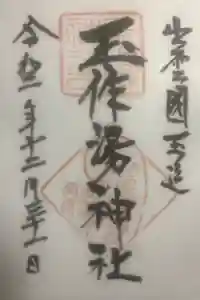 出雲國玉造
玉作湯神社
令和二年十二月三十一日